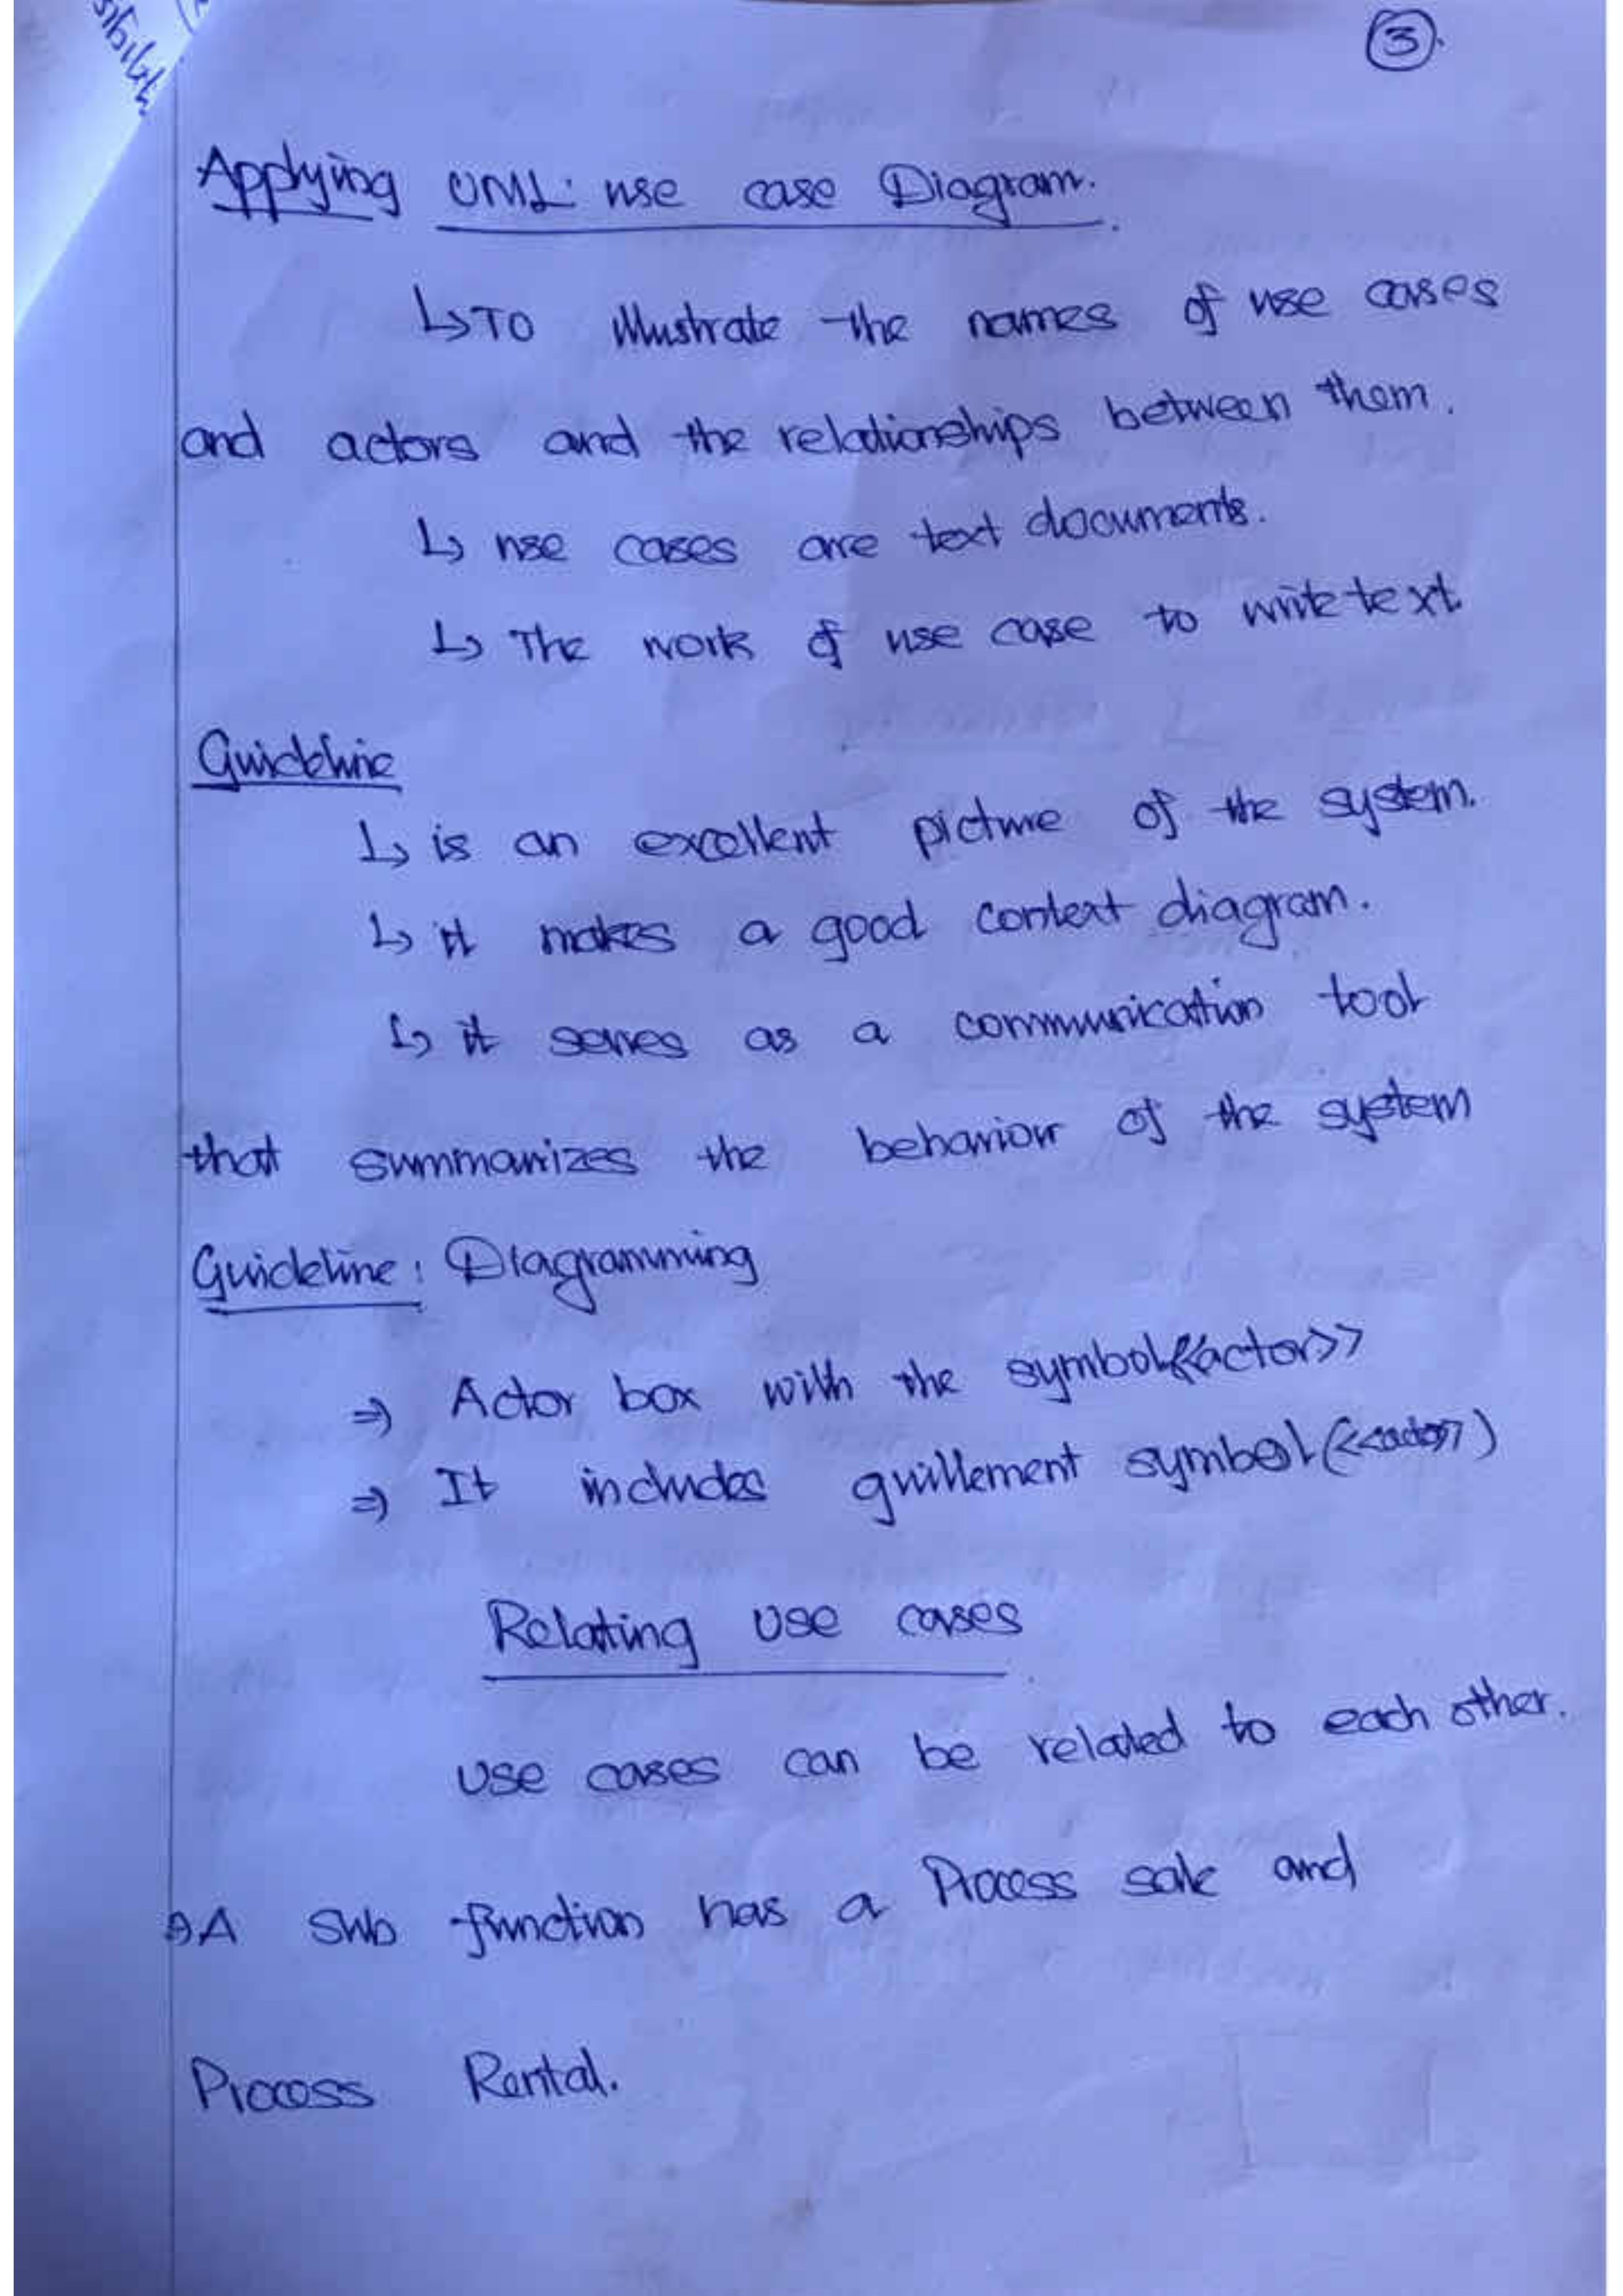 3.
Applying UML: use case Diagram.
↳ To illustrate the names of use cases
and actors and the relationships between them.
↳ use cases are text documents.
↳ The work of use case to write text
Guideline
↳ is an excellent picture of the system.
↳ it makes a good context diagram.
↳ it serves as a communication tool
that summarizes the behaviour of the system
Guideline: Diagramming
⇒ Actor box with the symbol <<actor>>
⇒ It includes guillement symbol (<<actor>>)
Relating use cases
use cases can be related to each other.
A sub function has a Process sale and
Process Rental.